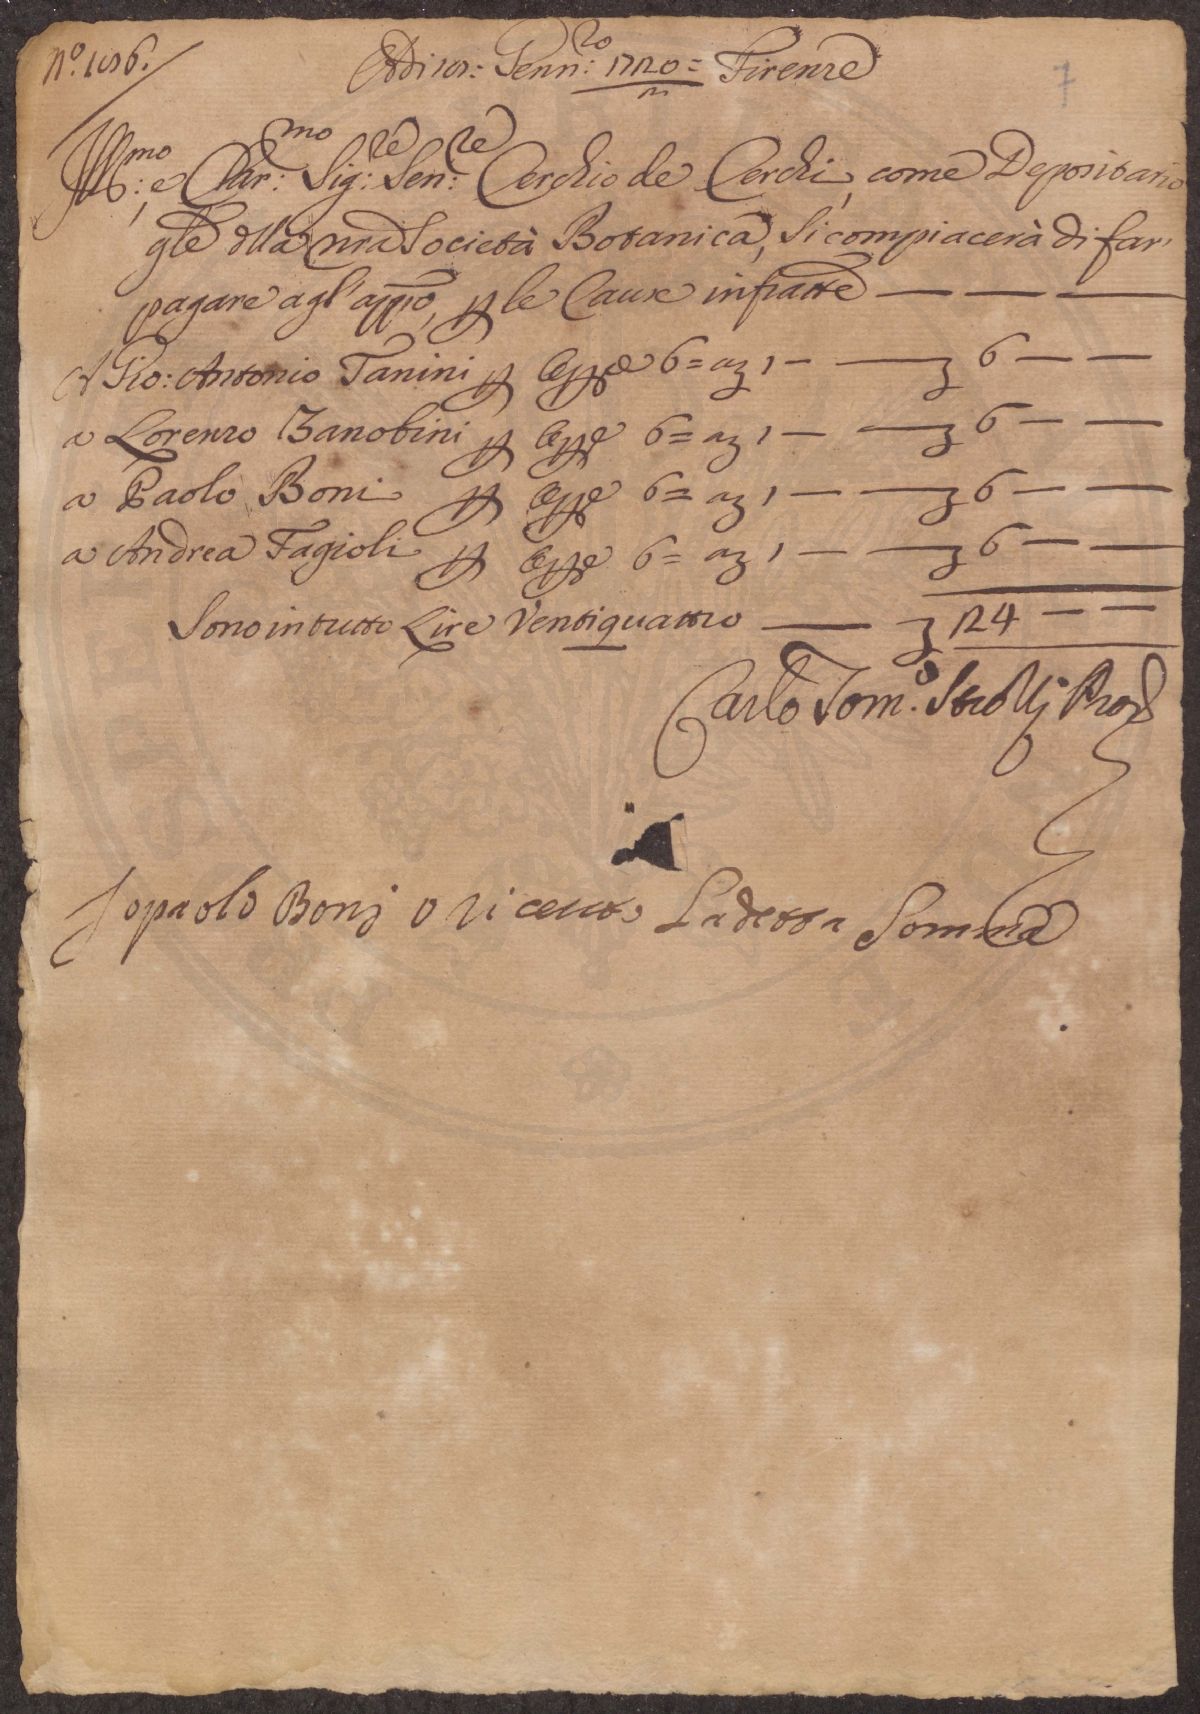 Nº. 1036.
Adi 10: Genn:ro 1720= Firenze
7
Ill:mo e Clar:mo Sig:re Sen:re Cerchio de Cerchi, come Depositario
gle dlla nra Società Botanica, Si compiacerà di far'
pagare agl' appio, p le Cause infratte — — —
A Gio: Antonio Tanini p Opre 6= a 1 — — 6 — —
a Lorenzo Zanobini p Opre 6= a 1 — — 6 — —
a Paolo Boni p Opre 6= a 1 — — 6 — —
a Andrea Fagioli p Opre 6= a 1 — — 6 — —
Sono in tutto Lire Ventiquattro — 24 — —
Carlo Tom.º Strozzj
Jo paolo Bonj o riceuto La detta Somma